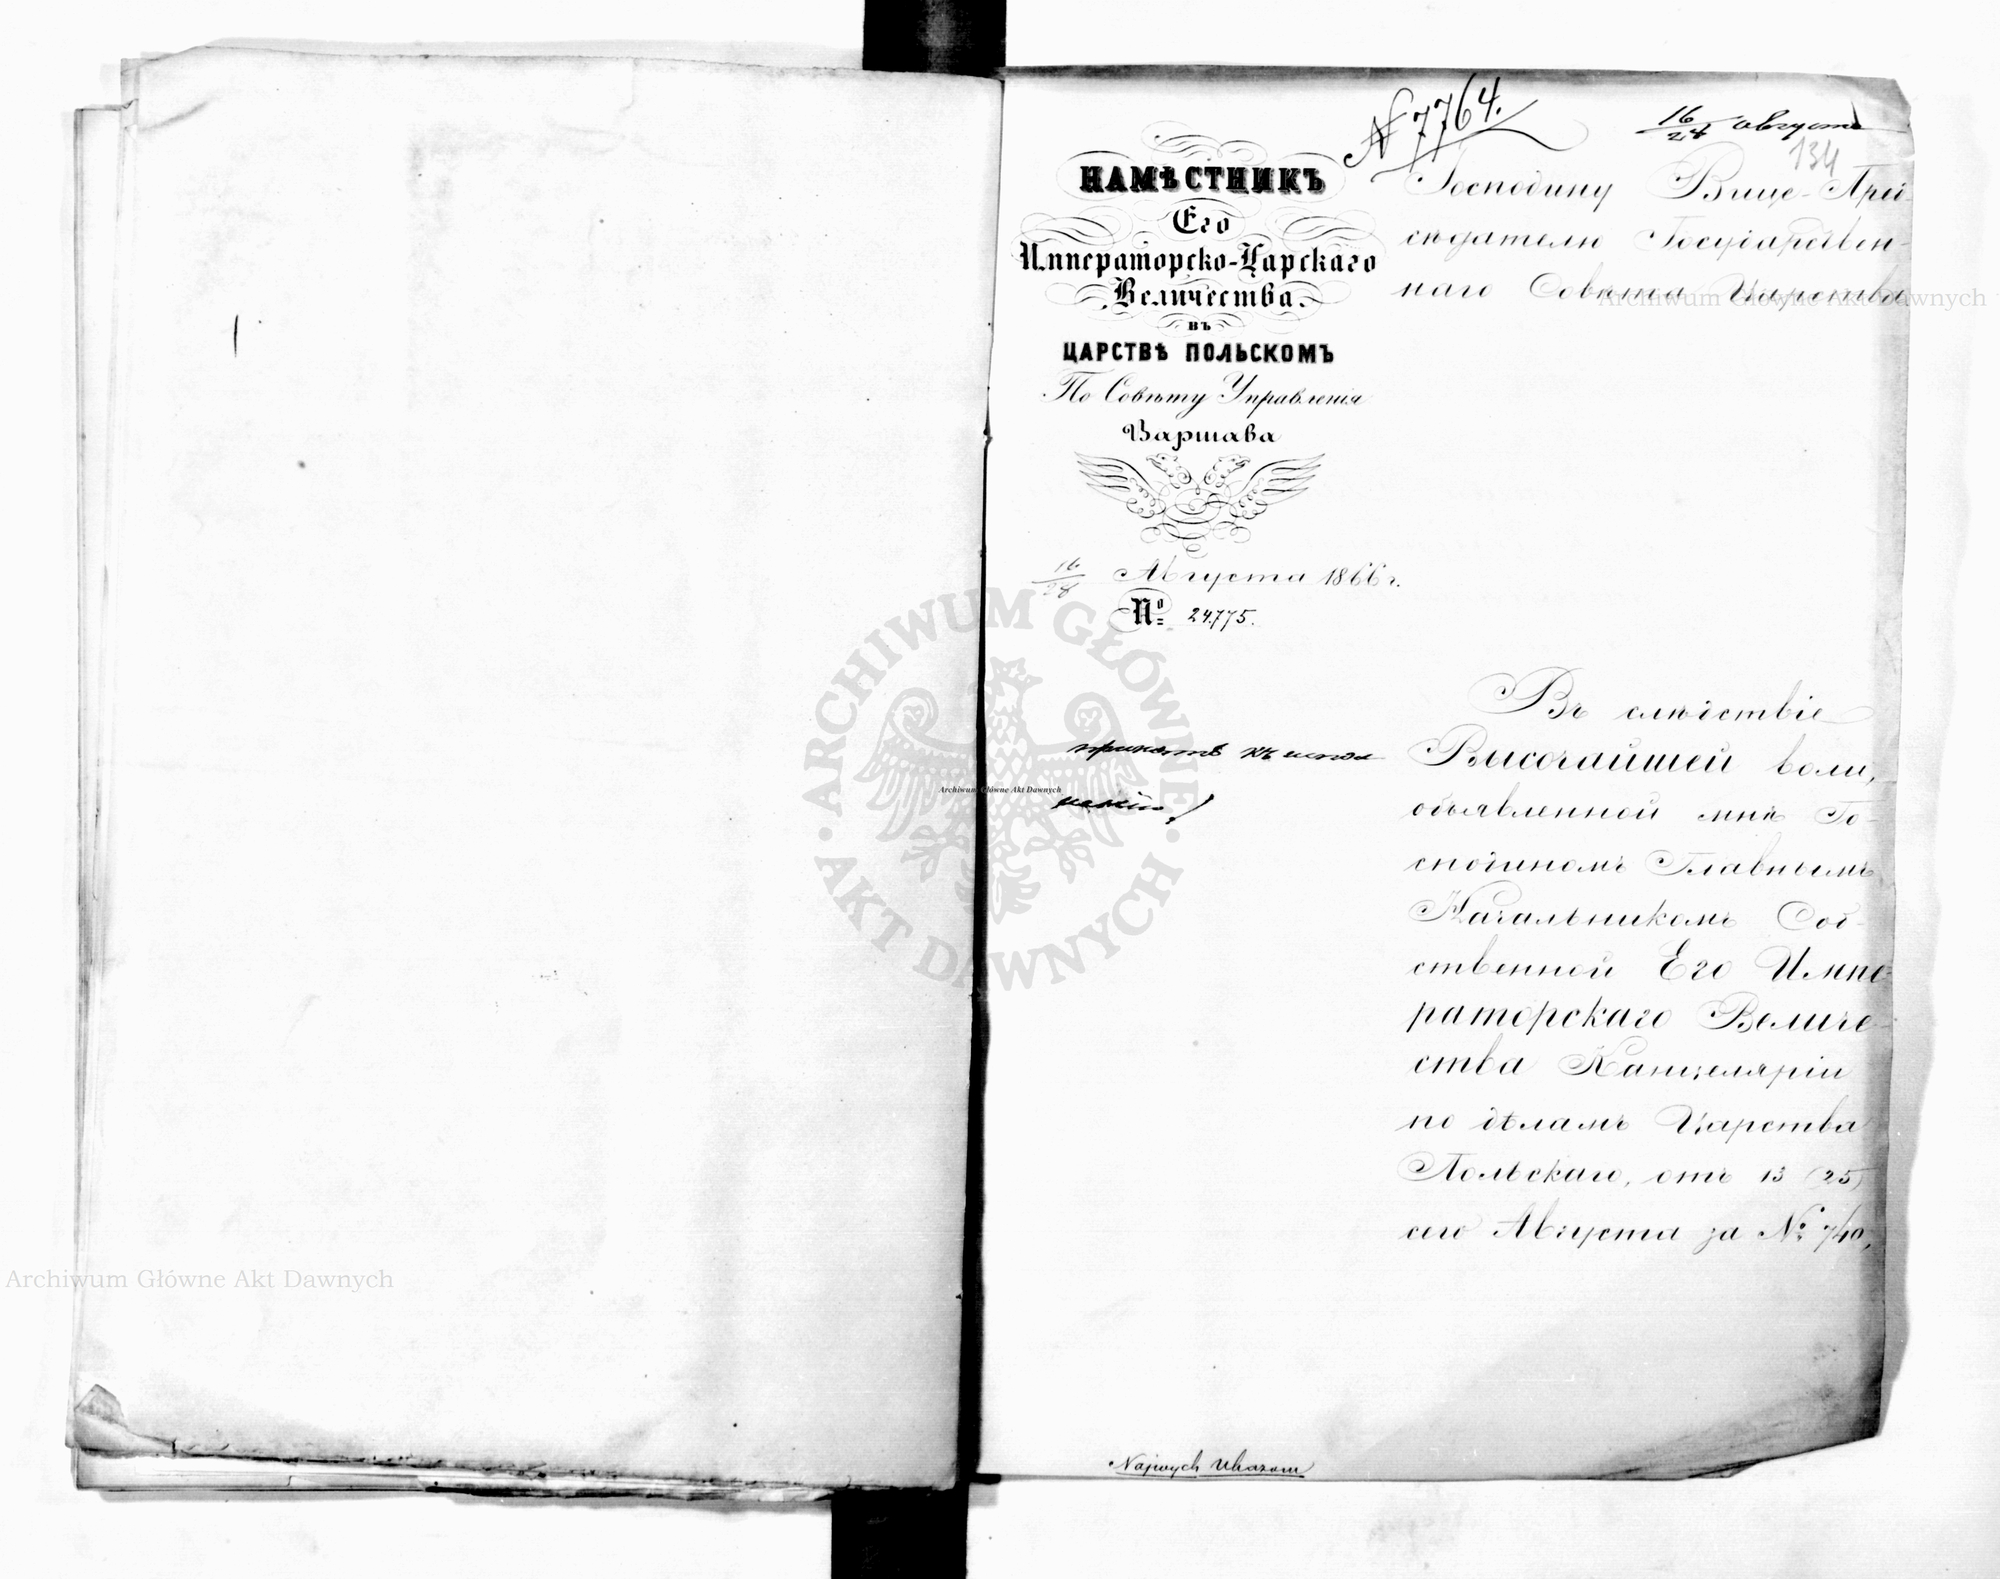 N 7764.
16/24 августа
134
НАМѢСТНИКЪ
Его
Императорско-Царскаго
Величества
въ
ЦАРСТВѢ ПОЛЬСКОМЪ
По Совѣту Управленія
Варшава
16/28 Августа 1866 г.
№ 24775.
Господину Вице-Пред-
сѣдателю Государствен-
наго Совѣта Царства
принять къ испол
ненію!
Въ слѣдствіе
Высочайшей воли,
объявленной мнѣ Го-
сподиномъ Главнымъ
Начальникомъ Соб-
ственной Его Импе-
раторскаго Величе-
ства Канцеляріи
по дѣламъ Царства
Польскаго, отъ 13 (25)
сего Августа за № 740,
Najwych Ukazom
Archiwum Główne Akt Dawnych
Archiwum Główne Akt Dawnych
Archiwum Główne Akt Dawnych
ARCHIWUM GŁÓWNE · AKT DAWNYCH ·